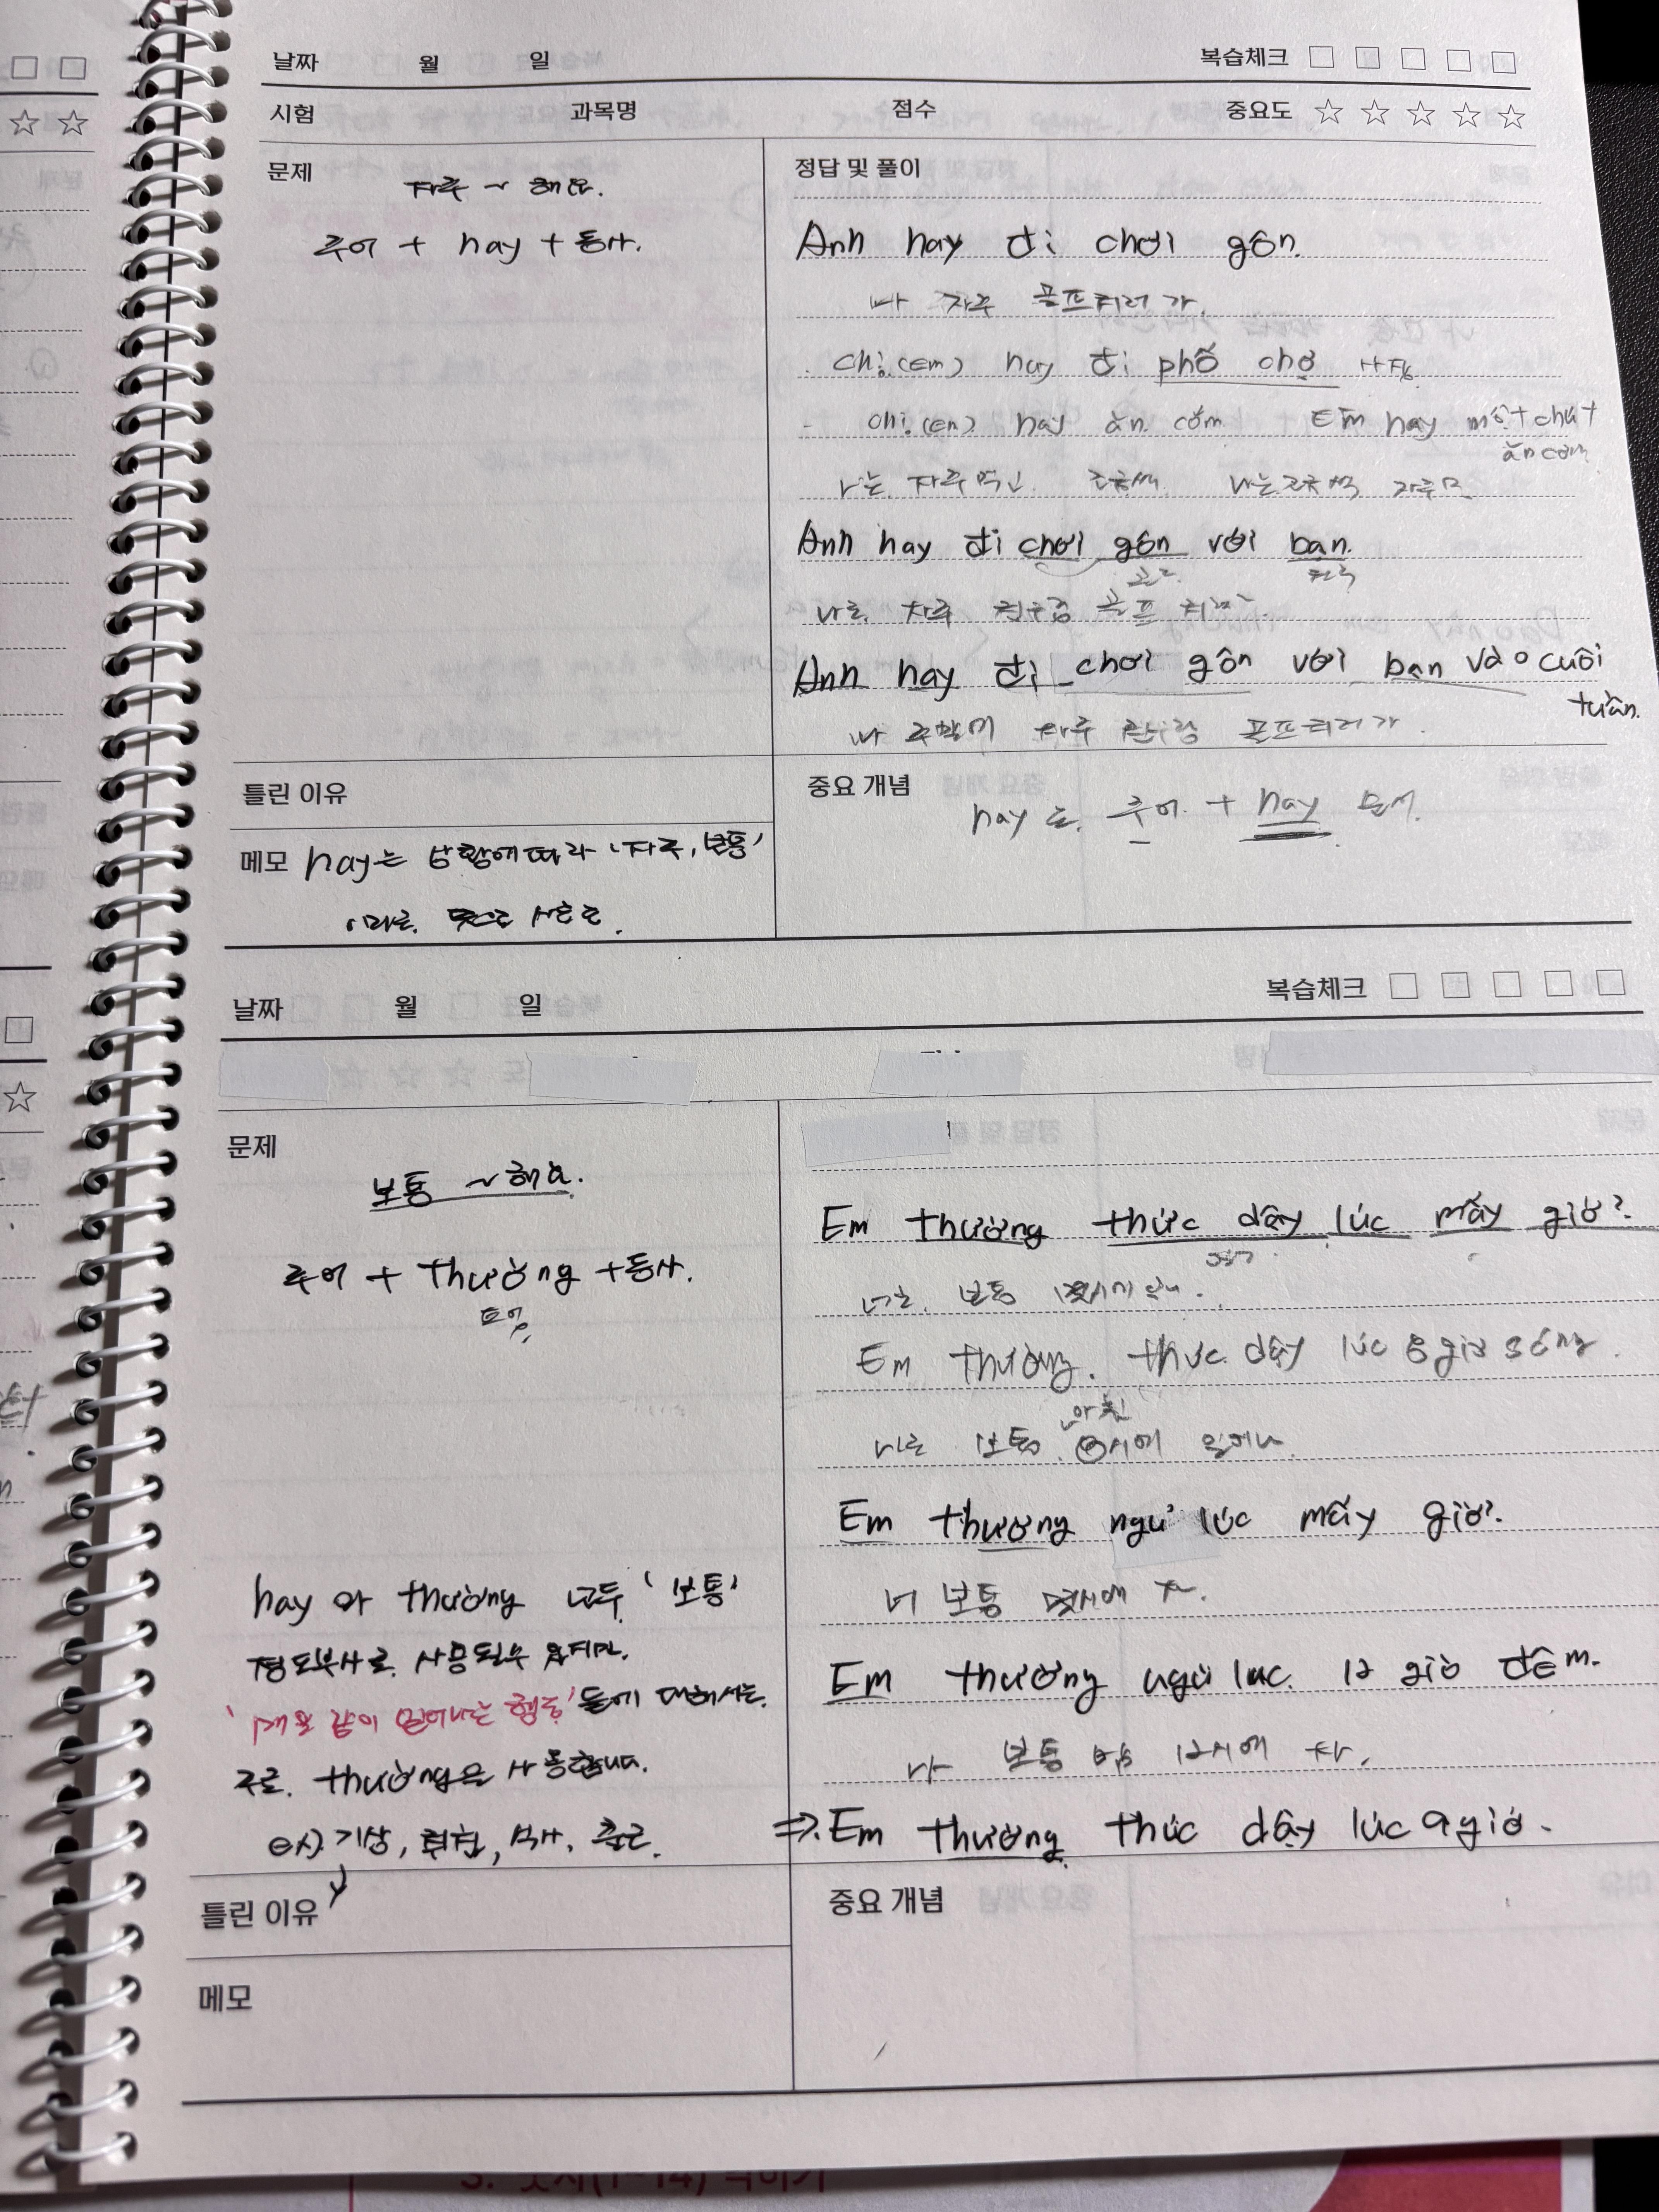 날짜 월 일 복습체크
시험 과목명 점수 중요도
문제
자주 ~ 해요.
주어 + hay + 동사.
정답 및 풀이
Anh hay đi chơi gôn.
나 자주 골프치러 가.
Chị.(Em) hay đi phố chợ
Chị.(Em) hay ăn cơm Em hay một chút
ăn cơm
나는 자주먹고 조금씩. 나는 조금씩 자주
Anh hay đi chơi gôn với bạn.
나는 자주 친구랑 골프
Anh hay đi chơi gôn với bạn vào cuối
tuần.
나 주말에 자주 친구랑 골프치러 가.
틀린 이유
메모 hay는 상황에따라 '자주, 보통'
이라는 뜻으로 사용됨.
중요 개념
hay 는 주어 + hay
날짜 월 일 복습체크
문제
보통 ~ 해요.
주어 + thường + 동사.
Em thường thức dậy lúc mấy giờ?
너는 보통 몇시에
Em thường. thức dậy lúc giờ sáng.
아침
나는 보통 시에 일어나.
Em thương ngủ lúc mấy giờ?
너 보통 몇시에 자.
Em thường ngủ luc. 12 giờ đêm.
나 보통 밤 12시에 자.
⇒ Em thường thức dậy lúc 9 giờ.
hay 와 thường 모두 '보통'
정도부사로 사용될수 있지만.
'매일 같이 일어나는 행동'들에 대해서는
주로. thường을 사용합니다.
ex) 기상, 취침, 식사, 출근.
틀린 이유
메모
중요 개념